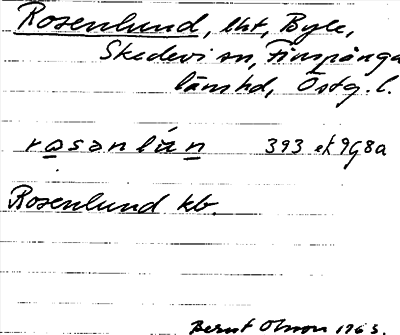 Rosenlund, lht, Byle,
Skedevi sn, Finspånga
länshd, Östg. l.
rosanlún 393 et 9G8a
Rosenlund kb.
Bernt Olsson 1963.